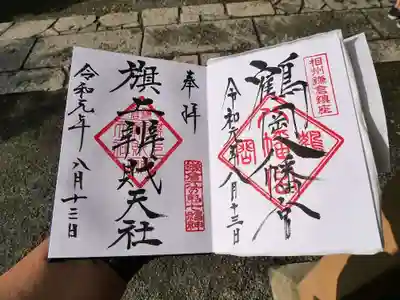 相州鎌倉鎮座
鶴岡八幡宮
令和元年八月十三日
奉拝
旗上辨財天社
令和元年八月十三日